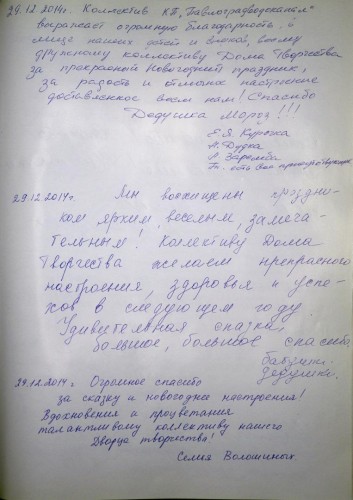 29.12.2014г. Коллектив КП "Павлоградводоканал"
выражает огромную благодарность, в
лице наших детей и внуков, всему
дружному коллективу Дома Творчества
за прекрасный Новогодний праздник,
за радость и отличное настроение
доставленное всем нам! Спасибо
Дедушка Мороз!!!
Е.Я.
А. Дудка
Заремба
29.12.2014г. Мы восхищены праздни-
ком ярким, веселым, замеча-
тельным! Коллективу Дома
Творчества желаем прекрасного
настроения, здоровья и успе-
хов в следующем году.
Удивительная сказка,
большое, большое спасибо
бабушки.
дедушки.
29.12.2014г Огромное спасибо
за сказку и новогоднее настроения!
Вдохновения и процветания
талантливому коллективу нашего
Дворца творчества!
Семья Волошиных.